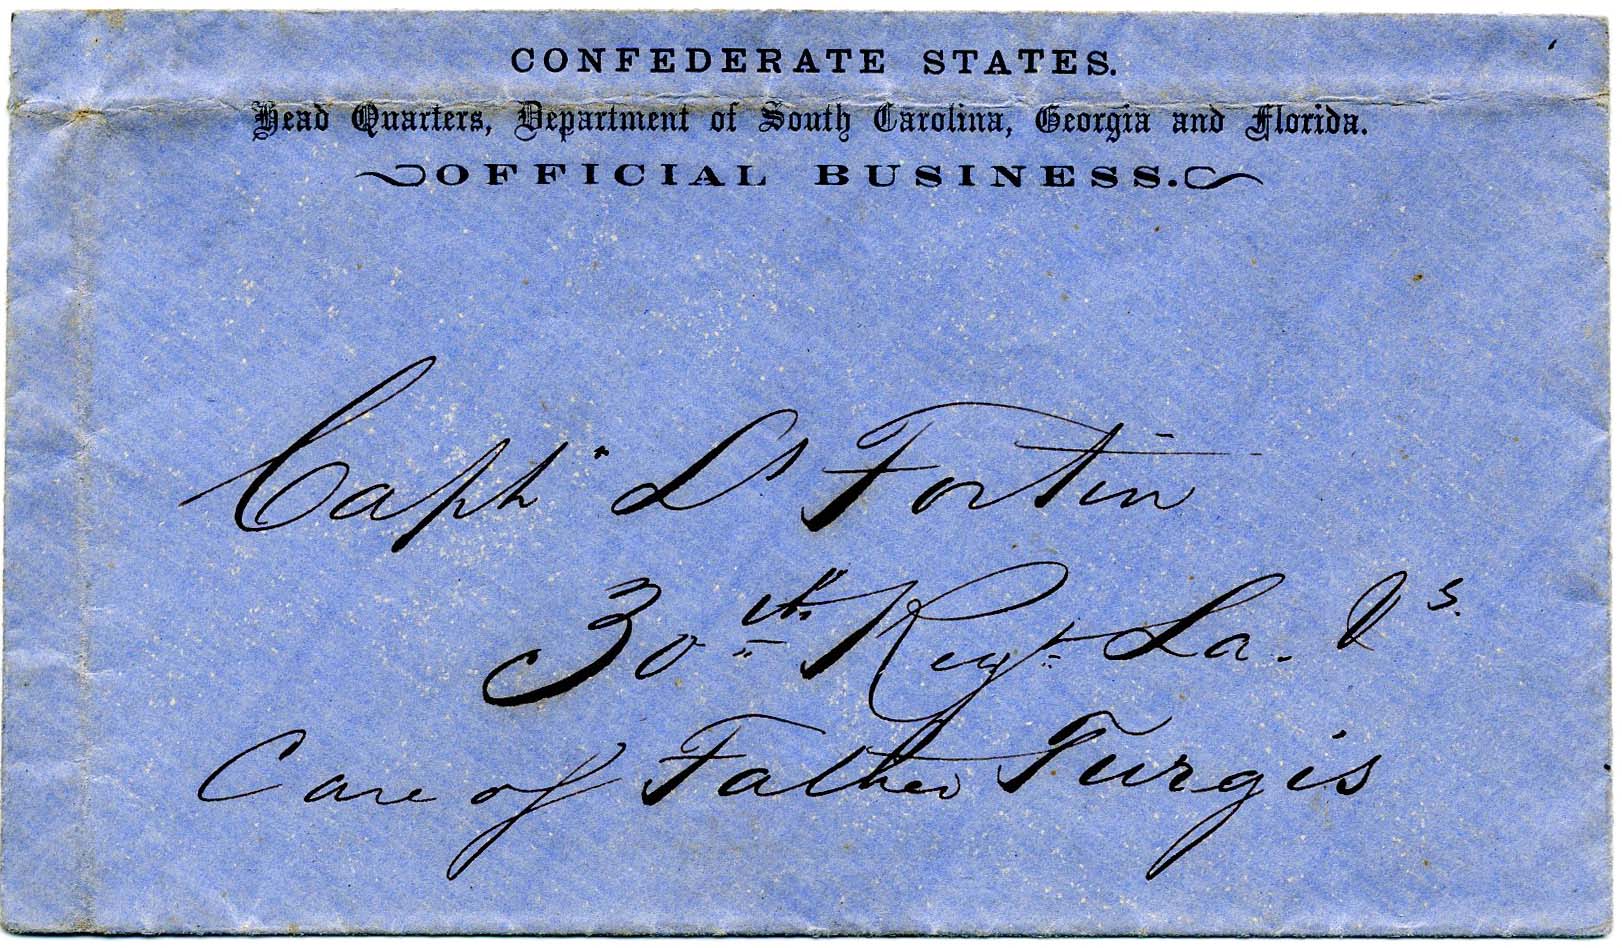 CONFEDERATE STATES.
Head Quarters, Department of South Carolina, Georgia and Florida.
OFFICIAL BUSINESS.
Capt. Ls Fortin
30th Regt La. Vs.
Care of Father Turgis